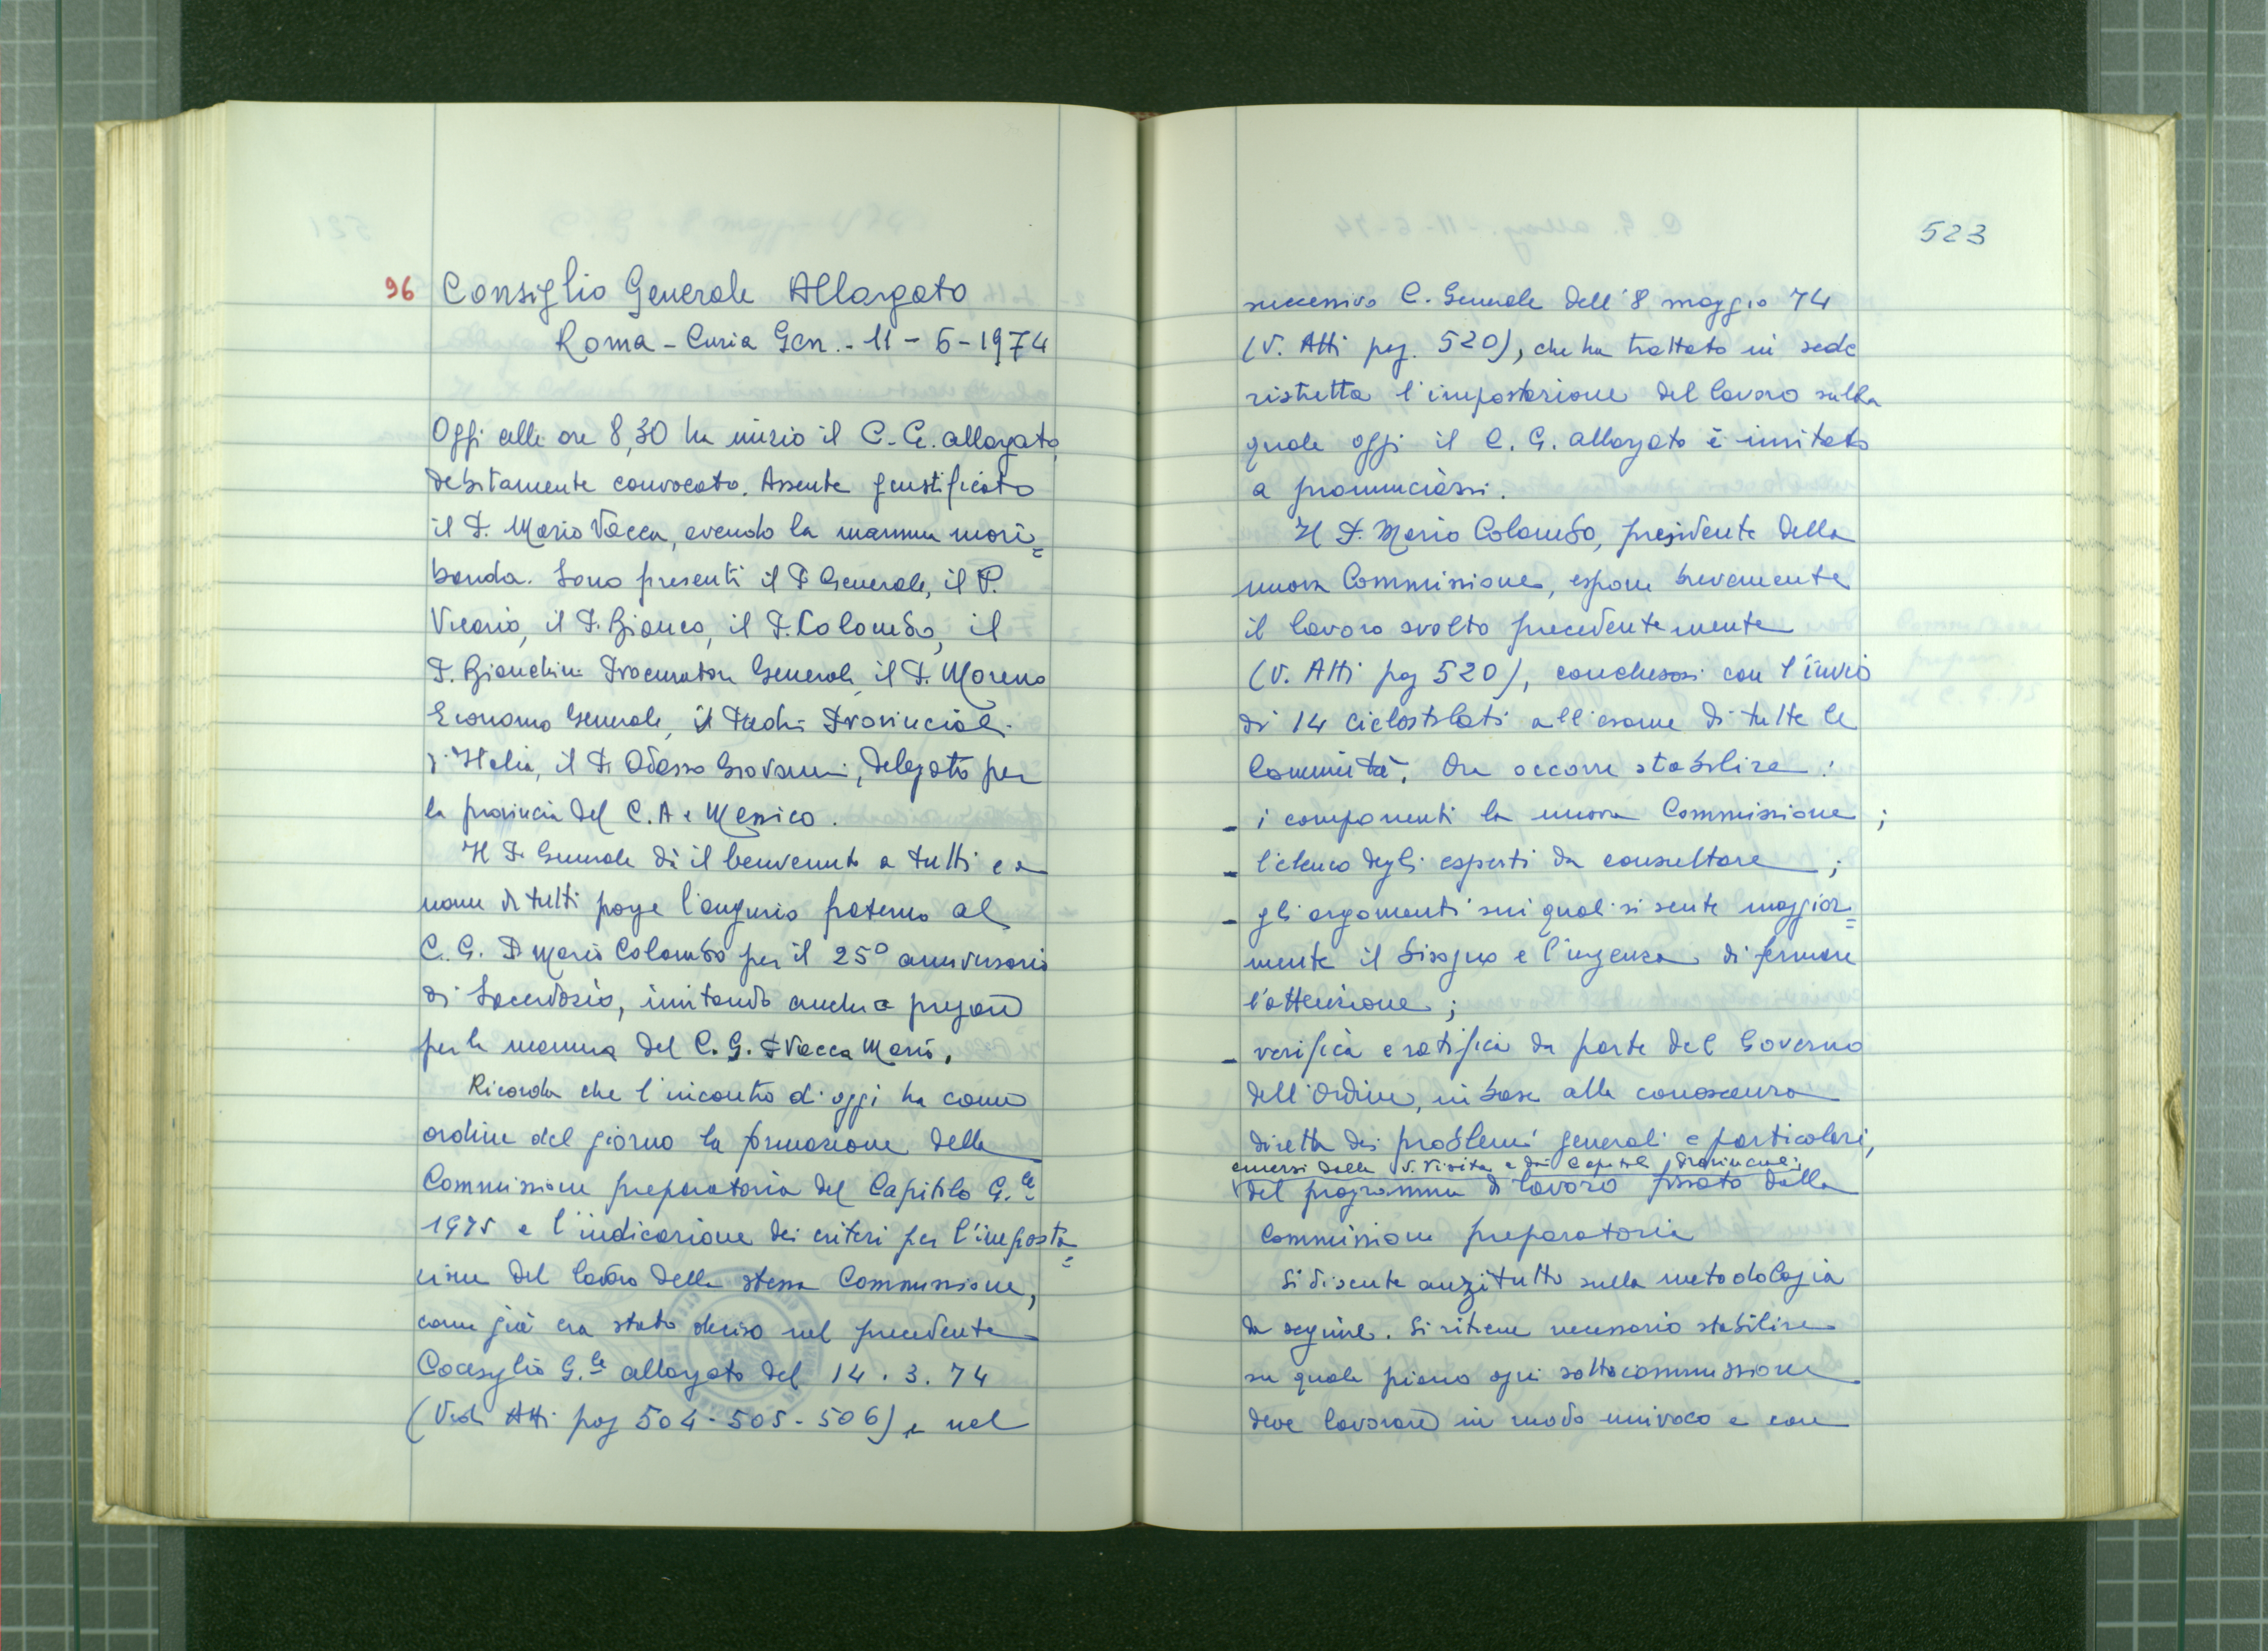 96 Consiglio Generale Allargato
Roma - Curia Gen. - 11 - 6 - 1974
Oggi alle ore 8,30 ha inizio il C. G. allargato,
debitamente convocato. Assente giustificato
il P. Mario Vacca, avendo la mamma mori=
bonda. Sono presenti il P. Generale, il P.
Vicario, il P. Bianco, il P. Colombo, il
P. Bianchini Procuratore Generale, il P. Moreno
Economo Generale, i Padri Provinciali
d'Italia, il P. Odasso Giovanni, delegato per
la provincia del C. A e Messico.
Il P. Generale dà il benvenuto a tutti e a
nome di tutti porge l'augurio fraterno al
C. G. P. Mario Colombo per il 25° anniversario
di Sacerdozio, invitando anche a pregare
per la mamma del C. G. P. Vacca Mario.
Ricorda che l'incontro di oggi ha come
ordine del giorno la formazione della
Commissione preparatoria del Capitolo G.le
1975 e l'indicazione dei criteri per l'imposta=
zione del lavoro della stessa Commissione,
come già era stato deciso nel precedente
Consiglio G.le allargato del 14 . 3 . 74
(Vedi Atti pag 504 - 505 - 506) e nel
523
successivo C. Generale dell'8 maggio 74
(V. Atti pag. 520), che ha trattato in sede
ristretta l'impostazione del lavoro sulla
quale oggi il C. G. allargato è invitato
a pronunciarsi.
Il P. Mario Colombo, presidente della
nuova Commissione, espone brevemente
il lavoro svolto precedentemente
(V. Atti pag 520), conclusosi con l'invio
di 14 ciclostilati all'esame di tutte le
Comunità. Ora occorre stabilire:
- i componenti la nuova Commissione ;
- l'elenco degli esperti da consultare ;
- gli argomenti sui quali si sente maggior=
mente il bisogno e l'urgenza di fermare
l'attenzione ;
- verifica e ratifica da parte del Governo
dell'Ordine, in base alla conoscenza
diretta dei problemi generali e particolari,
emersi dalla V. Visita e dai Capitoli Provinciali,
del programma di lavoro fissato dalla
Commissione preparatoria
Si discute anzitutto sulla metodologia
da seguire. Si ritiene necessario stabilire
su quale piano ogni sottocommissione
deve lavorare in modo univoco e con